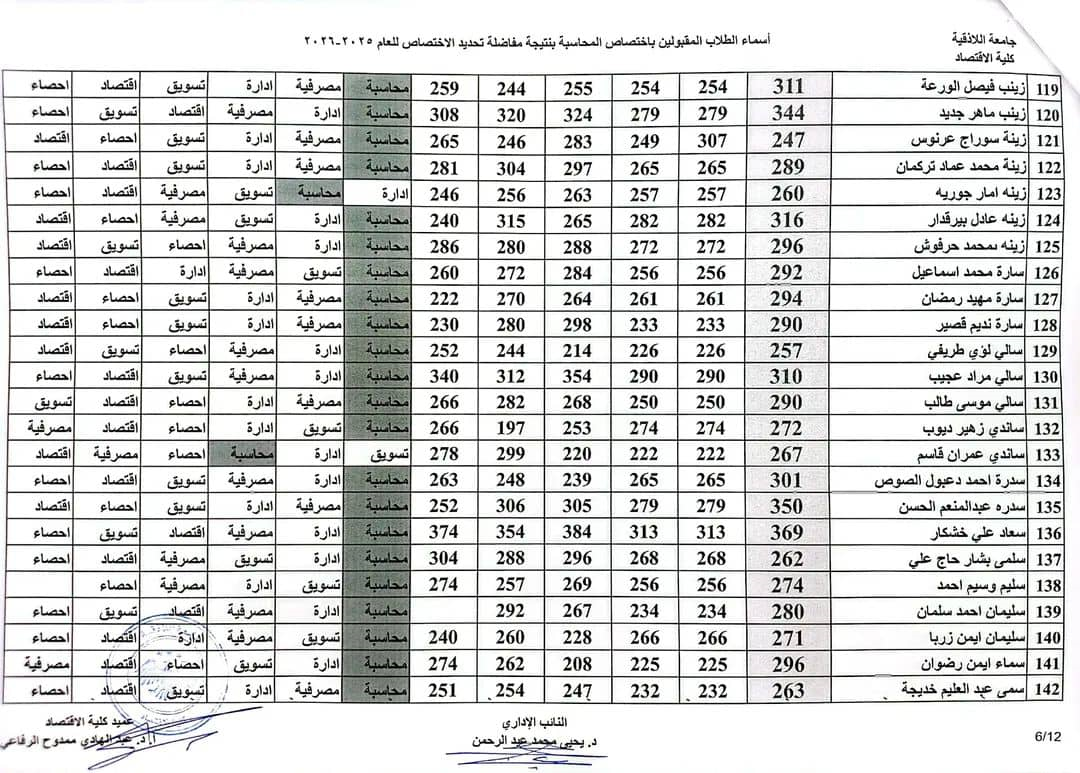 جامعة اللاذقية
كلية الاقتصاد
أسماء الطلاب المقبولين باختصاص المحاسبة بنتيجة مفاضلة تحديد الاختصاص للعام ٢٠٢٥-٢٠٢٦
119 زينب فيصل الورعة 311 254 254 255 244 259 محاسبة مصرفية ادارة تسويق اقتصاد احصاء
120 زينب ماهر جديد 344 279 279 324 320 308 محاسبة ادارة مصرفية اقتصاد تسويق احصاء
121 زينة سوراج عرنوس 247 307 249 283 246 265 محاسبة مصرفية ادارة تسويق احصاء اقتصاد
122 زينة محمد عماد تركمان 289 265 265 297 304 281 محاسبة مصرفية ادارة تسويق اقتصاد احصاء
123 زينه امار جوريه 260 257 257 263 256 246 ادارة محاسبة تسويق مصرفية اقتصاد احصاء
124 زينه عادل بيرقدار 316 282 282 265 315 240 محاسبة ادارة تسويق مصرفية احصاء اقتصاد
125 زينه محمد حرفوش 296 272 272 288 280 286 محاسبة ادارة مصرفية احصاء تسويق اقتصاد
126 سارة محمد اسماعيل 292 256 256 284 272 260 محاسبة تسويق مصرفية ادارة اقتصاد احصاء
127 سارة مهيد رمضان 294 261 261 264 270 222 محاسبة مصرفية ادارة تسويق احصاء اقتصاد
128 سارة نديم قصير 290 233 233 298 280 230 محاسبة مصرفية ادارة تسويق احصاء اقتصاد
129 سالي لؤي طريفي 257 226 226 214 244 252 محاسبة ادارة مصرفية احصاء تسويق اقتصاد
130 سالي مراد عجيب 310 290 290 354 312 340 محاسبة ادارة مصرفية تسويق اقتصاد احصاء
131 سالي موسى طالب 290 250 250 268 282 266 محاسبة مصرفية ادارة احصاء اقتصاد تسويق
132 ساندي زهير ديوب 272 274 274 253 197 266 محاسبة تسويق ادارة احصاء اقتصاد مصرفية
133 ساندي عمران قاسم 267 222 222 220 299 278 تسويق ادارة محاسبة احصاء مصرفية اقتصاد
134 سدرة احمد دعبول الصوص 301 265 265 239 248 263 محاسبة ادارة مصرفية تسويق اقتصاد احصاء
135 سدره عبدالمنعم الحسن 350 279 279 305 306 252 محاسبة مصرفية ادارة تسويق احصاء اقتصاد
136 سعاد علي خشكار 369 313 313 384 354 374 محاسبة ادارة مصرفية اقتصاد تسويق احصاء
137 سلمى بشار حاج علي 262 268 268 296 288 304 محاسبة ادارة تسويق مصرفية اقتصاد احصاء
138 سليم وسيم احمد 274 256 256 269 257 274 محاسبة تسويق ادارة مصرفية احصاء
139 سليمان احمد سلمان 280 234 234 267 292 محاسبة ادارة مصرفية اقتصاد تسويق احصاء
140 سليمان ايمن زريا 271 266 266 228 260 240 محاسبة تسويق مصرفية ادارة اقتصاد احصاء
141 سماء ايمن رضوان 296 225 225 208 262 274 محاسبة ادارة تسويق احصاء اقتصاد مصرفية
142 سمى عبد العليم خديجة 263 232 232 247 254 251 محاسبة مصرفية ادارة تسويق اقتصاد احصاء
6/12
النائب الإداري
د. يحيى محمد عبد الرحمن
عميد كلية الاقتصاد
أ.د. عبد الهادي ممدوح الرفاعي